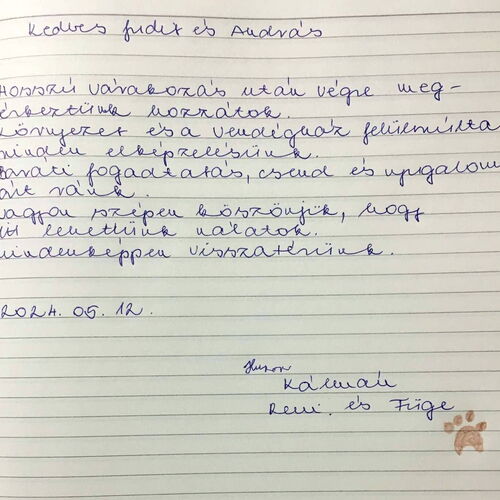 Kedves Judit és András
Hosszú várakozás után végre meg-
érkeztünk hozzátok.
Környezet és a vendégház felülmúlta
minden elképzelésünk.
Baráti fogadtatás, csend és nyugalom
várt ránk.
Nagyon szépen köszönjük, hogy
itt lehettünk nálatok.
Mindenképpen visszatérünk.
2024. 05. 12.
Kálmán
Remi. és Füge